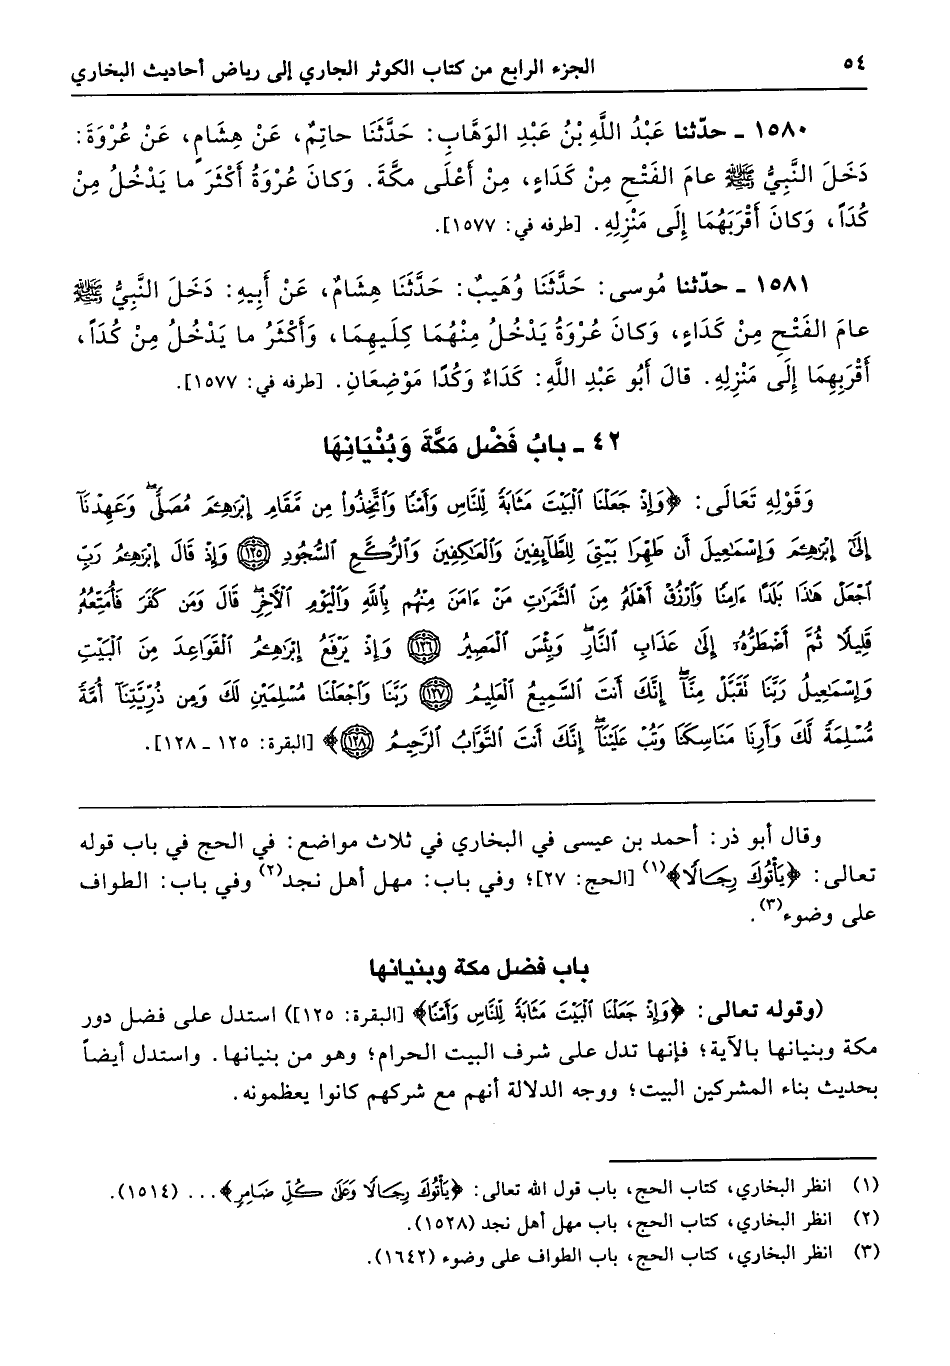 ٥٤
الجزء الرابع من كتاب الكوثر الجاري إلى رياض أحاديث البخاري
١٥٨٠ ـ حدّثنا عَبْدُ اللَّهِ بْنُ عَبْدِ الوَهَّابِ: حَدَّثَنَا حاتِمٌ، عَنْ هِشَامٍ، عَنْ عُرْوَةَ:
دَخَلَ النَّبِيُّ ﷺ عامَ الفَتْحِ مِنْ كَدَاءٍ، مِنْ أَعْلَى مكَّةَ. وَكانَ عُرْوَةُ أَكْثَرَ ما يَدْخُلُ مِنْ
كُدَاً، وَكانَ أَقْرَبَهُمَا إِلَى مَنْزِلِهِ. [طرفه في: ١٥٧٧].
١٥٨١ ـ حدّثنا مُوسى: حَدَّثَنَا وُهَيبٌ: حَدَّثَنَا هِشَامٌ، عَنْ أَبِيهِ: دَخَلَ النَّبِيُّ ﷺ
عامَ الفَتْحِ مِنْ كَدَاءٍ، وَكانَ عُرْوَةُ يَدْخُلُ مِنْهُمَا كِلَيهِمَا، وَأَكْثَرُ ما يَدْخُلُ مِنْ كُدَاً،
أَقْرَبِهِمَا إِلَى مَنْزِلِهِ. قالَ أَبُو عَبْدِ اللَّهِ: كَدَاءٌ وَكُدًا مَوْضِعَانِ. [طرفه في: ١٥٧٧].
٤٢ ـ بابُ فَضْلِ مَكَّةَ وَبُنْيَانِهَا
وَقَوْلِهِ تَعَالَى: ﴿وَإِذْ جَعَلْنَا ٱلْبَيْتَ مَثَابَةً لِّلنَّاسِ وَأَمْنًا وَٱتَّخِذُوا۟ مِن مَّقَامِ إِبْرَٰهِـۧمَ مُصَلًّى ۖ وَعَهِدْنَآ
إِلَىٰٓ إِبْرَٰهِـۧمَ وَإِسْمَـٰعِيلَ أَن طَهِّرَا بَيْتِىَ لِلطَّآئِفِينَ وَٱلْعَـٰكِفِينَ وَٱلرُّكَّعِ ٱلسُّجُودِ ﴿١٢٥﴾ وَإِذْ قَالَ إِبْرَٰهِـۧمُ رَبِّ
ٱجْعَلْ هَـٰذَا بَلَدًا ءَامِنًا وَٱرْزُقْ أَهْلَهُۥ مِنَ ٱلثَّمَرَٰتِ مَنْ ءَامَنَ مِنْهُم بِٱللَّهِ وَٱلْيَوْمِ ٱلْـَٔاخِرِ ۖ قَالَ وَمَن كَفَرَ فَأُمَتِّعُهُۥ
قَلِيلًا ثُمَّ أَضْطَرُّهُۥٓ إِلَىٰ عَذَابِ ٱلنَّارِ ۖ وَبِئْسَ ٱلْمَصِيرُ ﴿١٢٦﴾ وَإِذْ يَرْفَعُ إِبْرَٰهِـۧمُ ٱلْقَوَاعِدَ مِنَ ٱلْبَيْتِ
وَإِسْمَـٰعِيلُ رَبَّنَا تَقَبَّلْ مِنَّآ ۖ إِنَّكَ أَنتَ ٱلسَّمِيعُ ٱلْعَلِيمُ ﴿١٢٧﴾ رَبَّنَا وَٱجْعَلْنَا مُسْلِمَيْنِ لَكَ وَمِن ذُرِّيَّتِنَآ أُمَّةً
مُّسْلِمَةً لَّكَ وَأَرِنَا مَنَاسِكَنَا وَتُبْ عَلَيْنَآ ۖ إِنَّكَ أَنتَ ٱلتَّوَّابُ ٱلرَّحِيمُ ﴿١٢٨﴾﴾ [البقرة: ١٢٥ ـ ١٢٨].
وقال أبو ذر: أحمد بن عيسى في البخاري في ثلاث مواضع: في الحج في باب قوله
تعالى: ﴿يَأْتُوكَ رِجَالًا﴾(١) [الحج: ٢٧]؛ وفي باب: مهل أهل نجد(٢) وفي باب: الطواف
على وضوء(٣).
باب فضل مكة وبنيانها
(وقوله تعالى: ﴿وَإِذْ جَعَلْنَا ٱلْبَيْتَ مَثَابَةً لِّلنَّاسِ وَأَمْنًا﴾ [البقرة: ١٢٥]) استدل على فضل دور
مكة وبنيانها بالآية؛ فإنها تدل على شرف البيت الحرام؛ وهو من بنيانها. واستدل أيضاً
بحديث بناء المشركين البيت؛ ووجه الدلالة أنهم مع شركهم كانوا يعظمونه.
(١) انظر البخاري، كتاب الحج، باب قول الله تعالى: ﴿يَأْتُوكَ رِجَالًا وَعَلَىٰ كُلِّ ضَامِرٍ﴾... (١٥١٤).
(٢) انظر البخاري، كتاب الحج، باب مهل أهل نجد (١٥٢٨).
(٣) انظر البخاري، كتاب الحج، باب الطواف على وضوء (١٦٤٢).